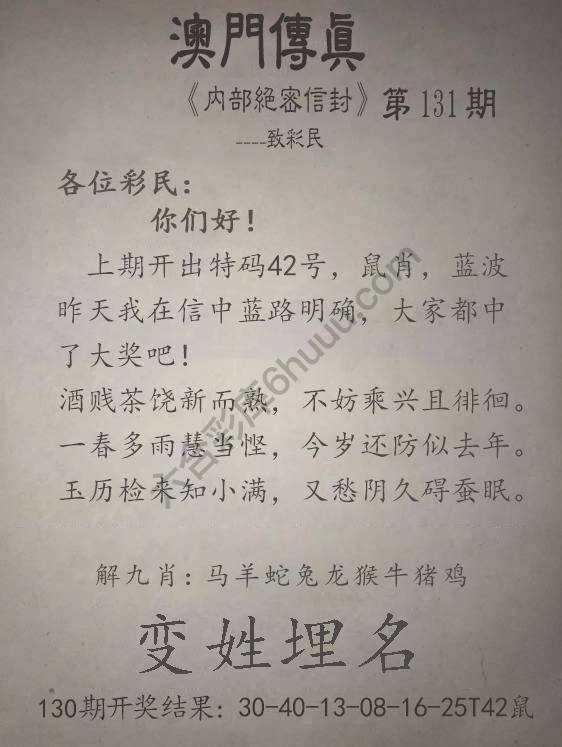 澳門傳眞
《内部絕密信封》第131期
----致彩民
各位彩民：
你们好！
上期开出特码42号，鼠肖，蓝波
昨天我在信中蓝路明确，大家都中
了大奖吧！
酒贱茶饶新而熟，不妨乘兴且徘徊。
一春多雨慧当悭，今岁还防似去年。
玉历检来知小满，又愁阴久碍蚕眠。
解九肖：马羊蛇兔龙猴牛猪鸡
变姓埋名
130期开奖结果：30-40-13-08-16-25T42鼠
六合彩库6huuu.com